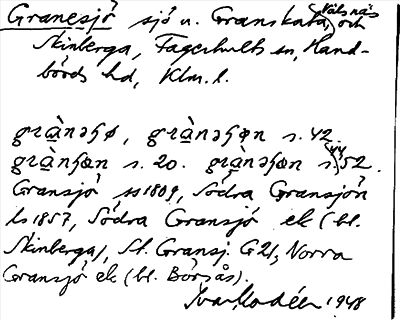 Granesjö sjö n. Granskata, Välsnäs och
Skinberga, Fagerhults sn, Hand-
börds hd, Klm. l.
grànəɧø, grànəɧøn s. 42.
grànɧœn s. 20. grànəɧœn s. 44, 52.
Gransjö ss 1809, Södra Gransjön
ls 1857, Södra Gransjö ek (bl.
Skinberga), St. Gransj. G 21, Norra
Gransjö ek (bl. Börsås).
Ivar Modéer 1948